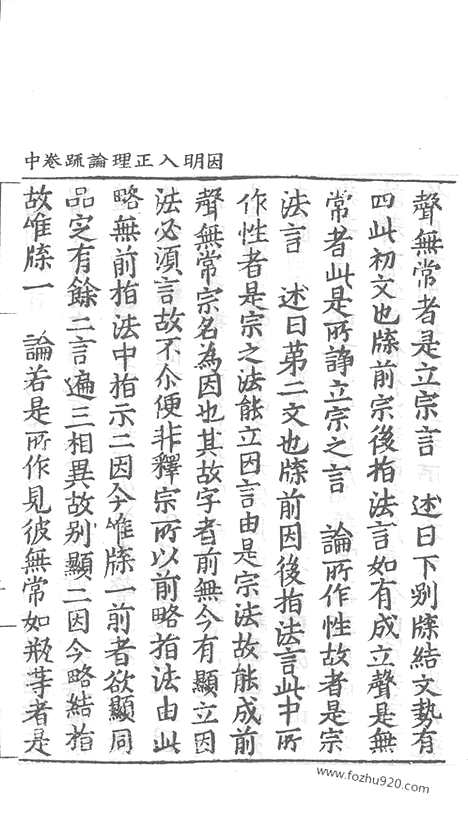 因明入正理論疏卷中
聲無常者是立宗言　述曰下別牒結文勢有
四此初文也牒前宗後指法言如有成立聲是無
常者此是所諍立宗之言　論所作性故者是宗
法言　述曰第二文也牒前因後指法言此中所
作性者是宗之法能立因言由是宗法故能成前
聲無常宗名為因也其故字者前無今有顯立因
法必須言故不尒便非釋宗所以前略指法由此
略無前指法中指示二因今唯牒一前者欲顯同
品定有餘二言遍三相異故別顯二因今略結指
故唯牒一　論若是所作見彼無常如瓶等者是
www.fozhu920.com